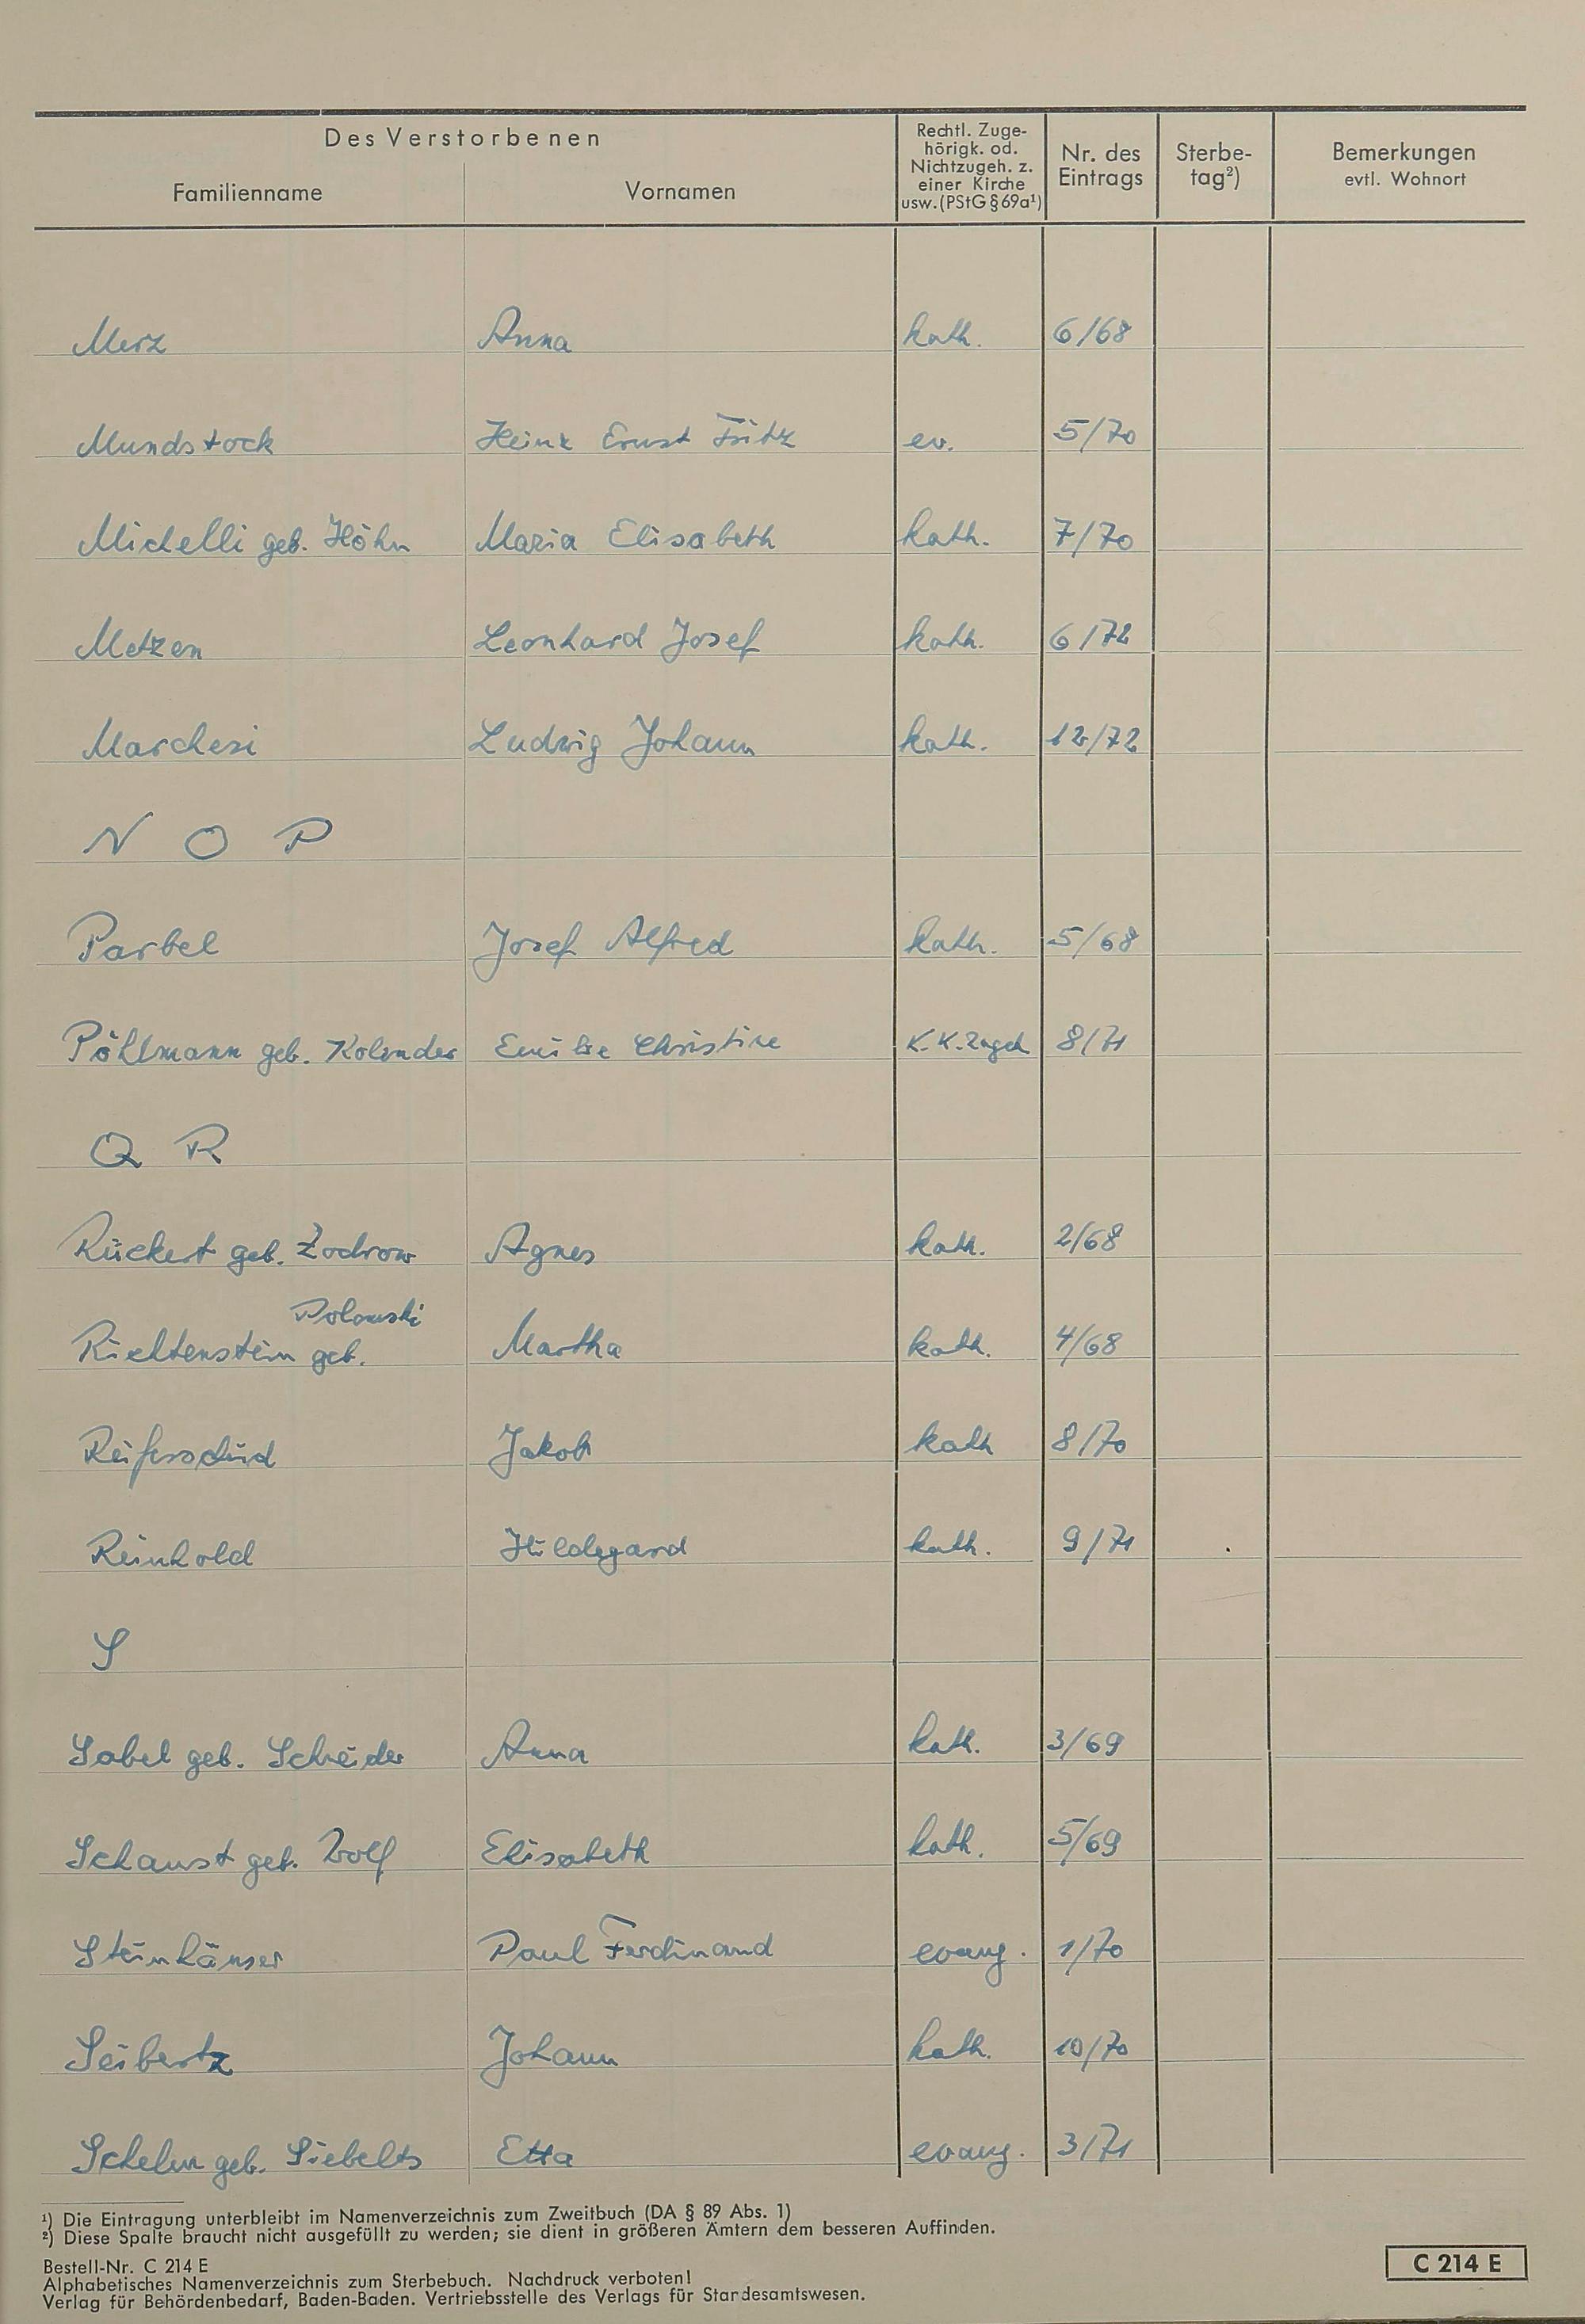 Des Verstorbenen
Familienname Vornamen
Rechtl. Zuge-
hörigk. od.
Nichtzugeh. z.
einer Kirche
usw.(PStG §69a¹)
Nr. des
Eintrags
Sterbe-
tag²)
Bemerkungen
evtl. Wohnort
Merz Anna kath. 6/68
Mundstock Heinz Ernst Fritz ev. 5/70
Michelli geb. Höhn Maria Elisabeth kath. 7/70
Metzen Leonhard Josef kath. 6/72
Marchesi Ludwig Johann kath. 12/72
N O P
Parbel Josef Alfred kath. 5/68
Pöhlmann geb. Kolander Emilie Christine K.K.Zugeh 8/71
Q R
Rückert geb. Zodrow Agnes kath. 2/68
Polowski
Richtenstein geb. Martha kath. 4/68
Reiferscheid Jakob kath 8/70
Reinhold Hildegard kath. 9/71
S
Sabel geb. Scheider Anna kath. 3/69
Schaust geb. Wolf Elisabeth kath. 5/69
Steinhäuser Paul Ferdinand evang. 1/70
Seibertz Johann kath. 10/70
Schelm geb. Siebelts Etta evang. 3/71
¹) Die Eintragung unterbleibt im Namenverzeichnis zum Zweitbuch (DA § 89 Abs. 1)
²) Diese Spalte braucht nicht ausgefüllt zu werden; sie dient in größeren Ämtern dem besseren Auffinden.
Bestell-Nr. C 214 E
Alphabetisches Namenverzeichnis zum Sterbebuch. Nachdruck verboten!
Verlag für Behördenbedarf, Baden-Baden. Vertriebsstelle des Verlags für Standesamtswesen.
C 214 E